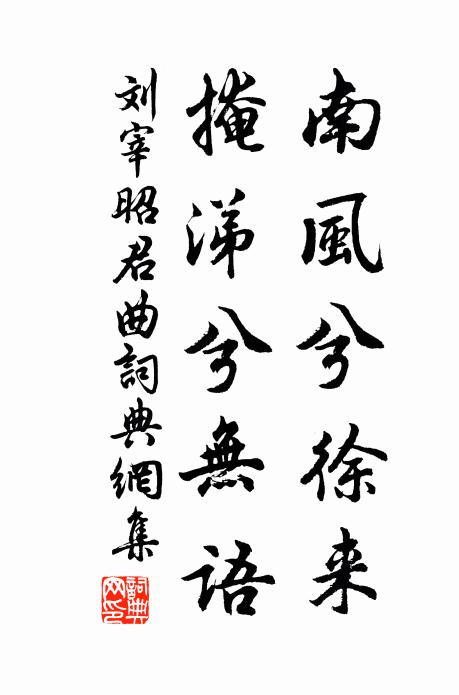 南風兮徐来
掩涕兮無語
刘宰昭君曲詞典網集
詞典網印